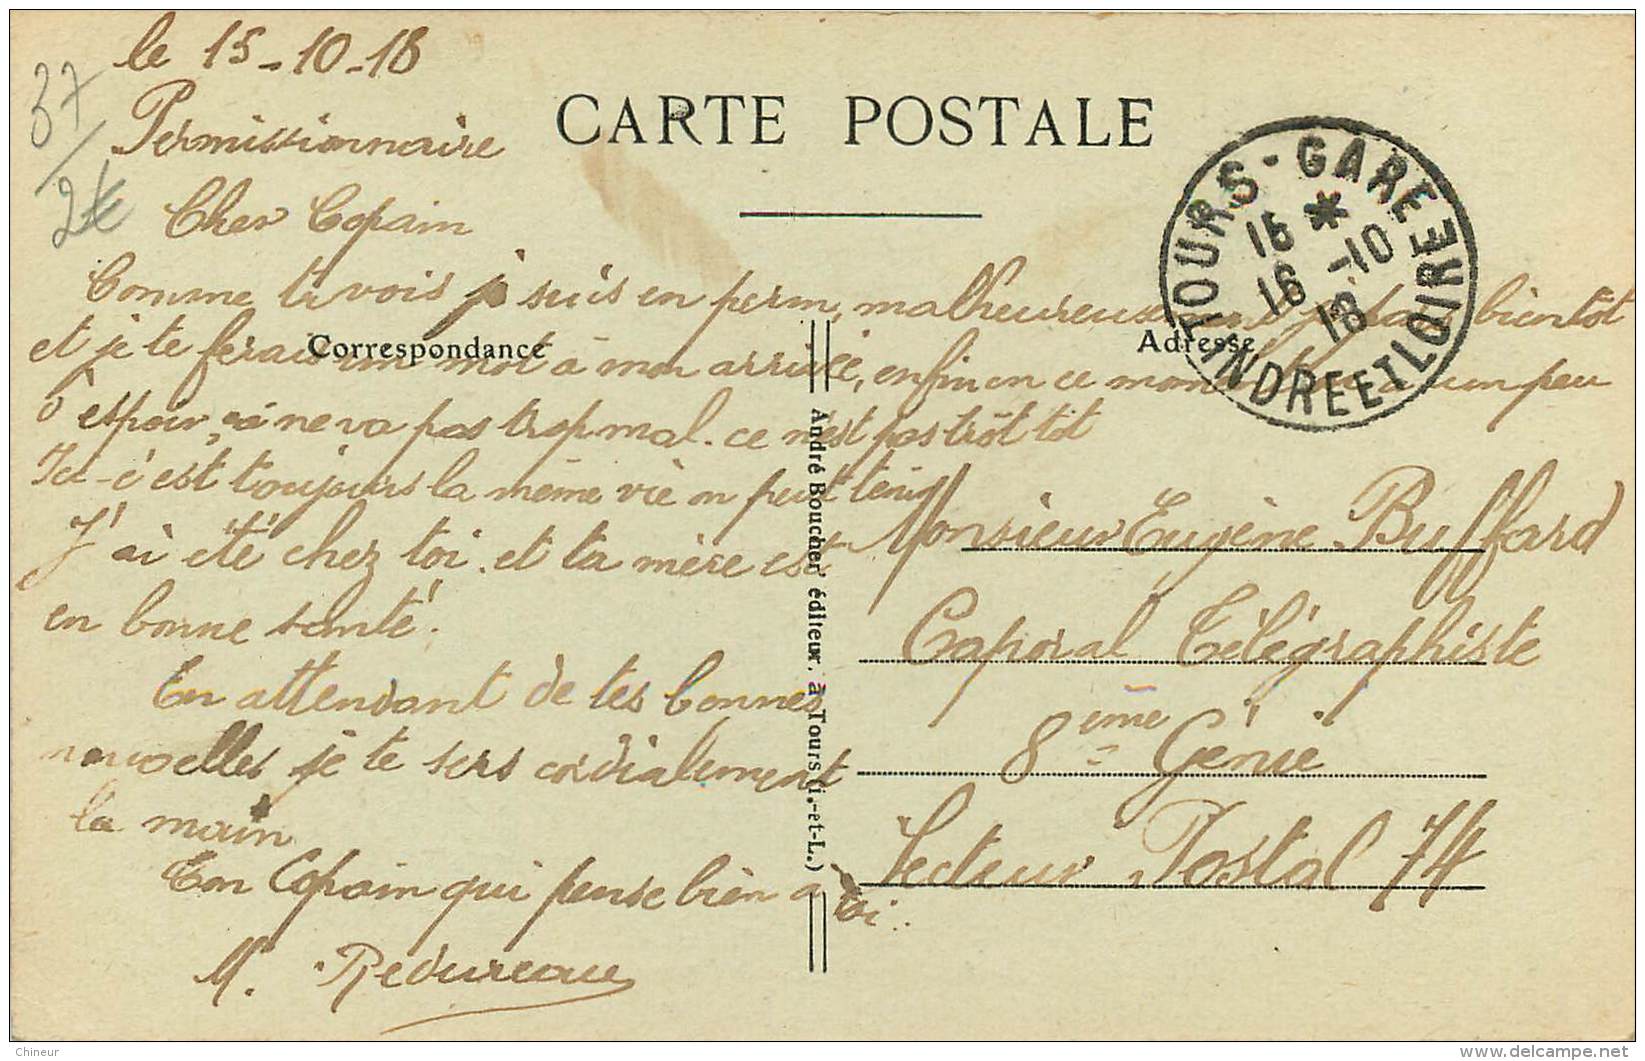 le 15-10-18
37
2€
Permissionnaire
CARTE POSTALE
TOURS-GARE
INDRE ET LOIRE
15 *
16 -10
18
Cher Copain
Comme tu vois je suis en perm, malheureusement je pars bientôt
Correspondance
Adresse
et je te ferais un mot à mon arrivée, enfin en ce moment un peu
d'espoir, ça ne va pas trop mal. ce n'est pas trôt tôt
Ici c'est toujours la même vie on peut tenir
J'ai été chez toi et ta mère est
en bonne santé.
En attendant de tes bonnes
nouvelles je te sers cordialement
la main
Ton Copain qui pense bien a toi.
M. Redureau
André Boucher, éditeur, à Tours (I.-et-L.)
Monsieur Eugène Buffard
Caporal Télégraphiste
8ème Génie
Secteur Postal 74
Chineur
delcampe.net